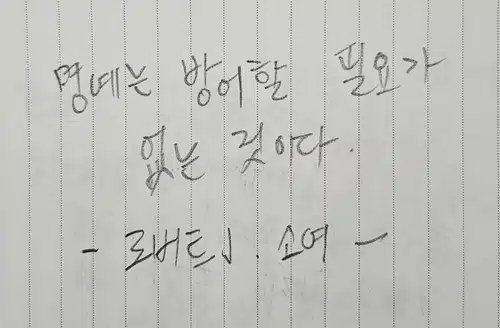 명예는 방어할 필요가
없는 것이다.
- 로버트 J. 소여 -